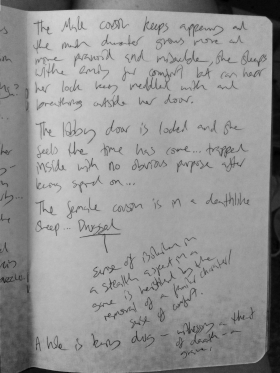 The Male cousin keeps appearing and
the main character grows more and
more paranoid and miserable, she sleeps
with the family for comfort but can hear
her lock being meddled with and
breathing outside her door.
The library door is locked and she
feels the time has come... trapped
inside with no obvious purpose after
being spied on...
The female cousin is in a deathlike
sleep... Drugged
sense of isolation in
a stealth aspect in a
game is heightened by the
removal of a familiar
sense of comfort.
A hole is being dug - witnessing a
of death - a
grave!